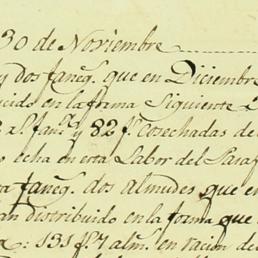 30 de Noviembre
y dos faneg.s que en Diciembre
cido en la forma Siguiente
a.s fan.s y 82 f.s cosechadas de
o echa en esta Labor del Paraf
faneg.s dos almudes que en
an distribuido en la forma que
: 131 f.s 7 alm.s en racion de